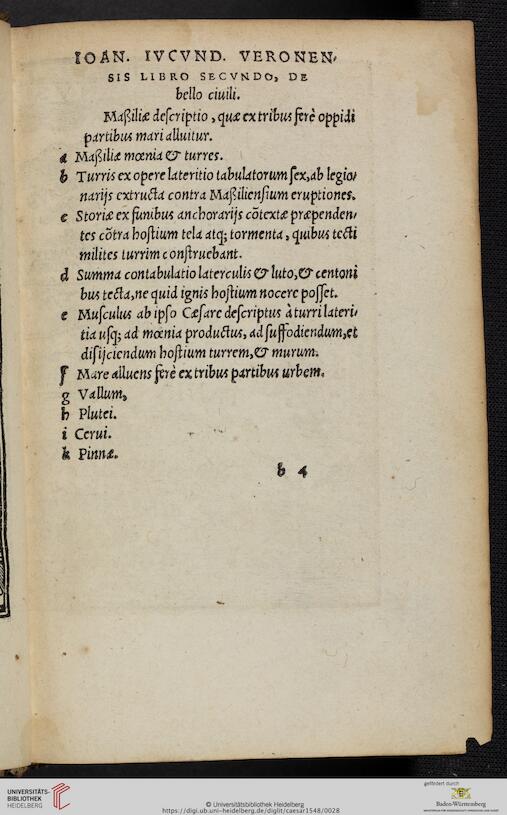 IOAN. IVCVND. VERONEN-
SIS LIBRO SECVNDO, DE
bello ciuili.
Maßiliæ descriptio, quæ ex tribus ferè oppidi
partibus mari alluitur.
a Maßiliæ mœnia & turres.
b Turris ex opere lateritio tabulatorum sex, ab legio-
narijs extructa contra Maßiliensium eruptiones.
c Storiæ ex funibus anchorarijs cõtextæ præpenden-
tes cõtra hostium tela atq; tormenta, quibus tecti
milites turrim construebant.
d Summa contabulatio laterculis & luto, & centoni
bus tecta, ne quid ignis hostium nocere posset.
e Musculus ab ipso Cæsare descriptus à turri lateri-
tia usq; ad mœnia productus, ad suffodiendum, et
disijciendum hostium turrem, & murum.
f Mare alluens ferè ex tribus partibus urbem.
g Vallum,
h Plutei.
i Cerui.
k Pinnæ.
b 4
UNIVERSITÄTS-
BIBLIOTHEK
HEIDELBERG
© Universitätsbibliothek Heidelberg
https://digi.ub.uni-heidelberg.de/diglit/caesar1548/0028
gefördert durch
Baden-Württemberg